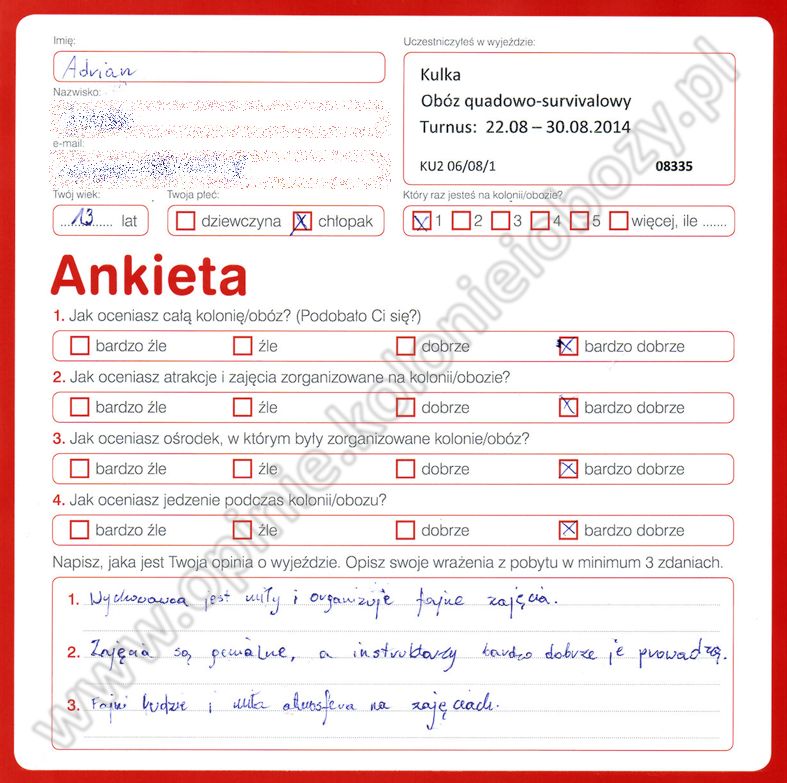 Imię:
Adrian
Uczestniczyłeś w wyjeździe:
Kulka
Obóz quadowo-survivalowy
Turnus: 22.08 – 30.08.2014
KU2 06/08/1 08335
Nazwisko:
e-mail:
Twój wiek:
13 lat
Twoja płeć:
dziewczyna chłopak
Który raz jesteś na kolonii/obozie?
1 2 3 4 5 więcej, ile .......
Ankieta
1. Jak oceniasz całą kolonię/obóz? (Podobało Ci się?)
bardzo źle źle dobrze bardzo dobrze
2. Jak oceniasz atrakcje i zajęcia zorganizowane na kolonii/obozie?
bardzo źle źle dobrze bardzo dobrze
3. Jak oceniasz ośrodek, w którym były zorganizowane kolonie/obóz?
bardzo źle źle dobrze bardzo dobrze
4. Jak oceniasz jedzenie podczas kolonii/obozu?
bardzo źle źle dobrze bardzo dobrze
Napisz, jaka jest Twoja opinia o wyjeździe. Opisz swoje wrażenia z pobytu w minimum 3 zdaniach.
1. Wychowawca jest miły i organizuje fajne zajęcia.
2. Zajęcia są genialne, a instruktorzy bardzo dobrze je prowadzą.
3. Fajni ludzie i miła atmosfera na zajęciach.
www.opinie.kolonieiobozy.pl